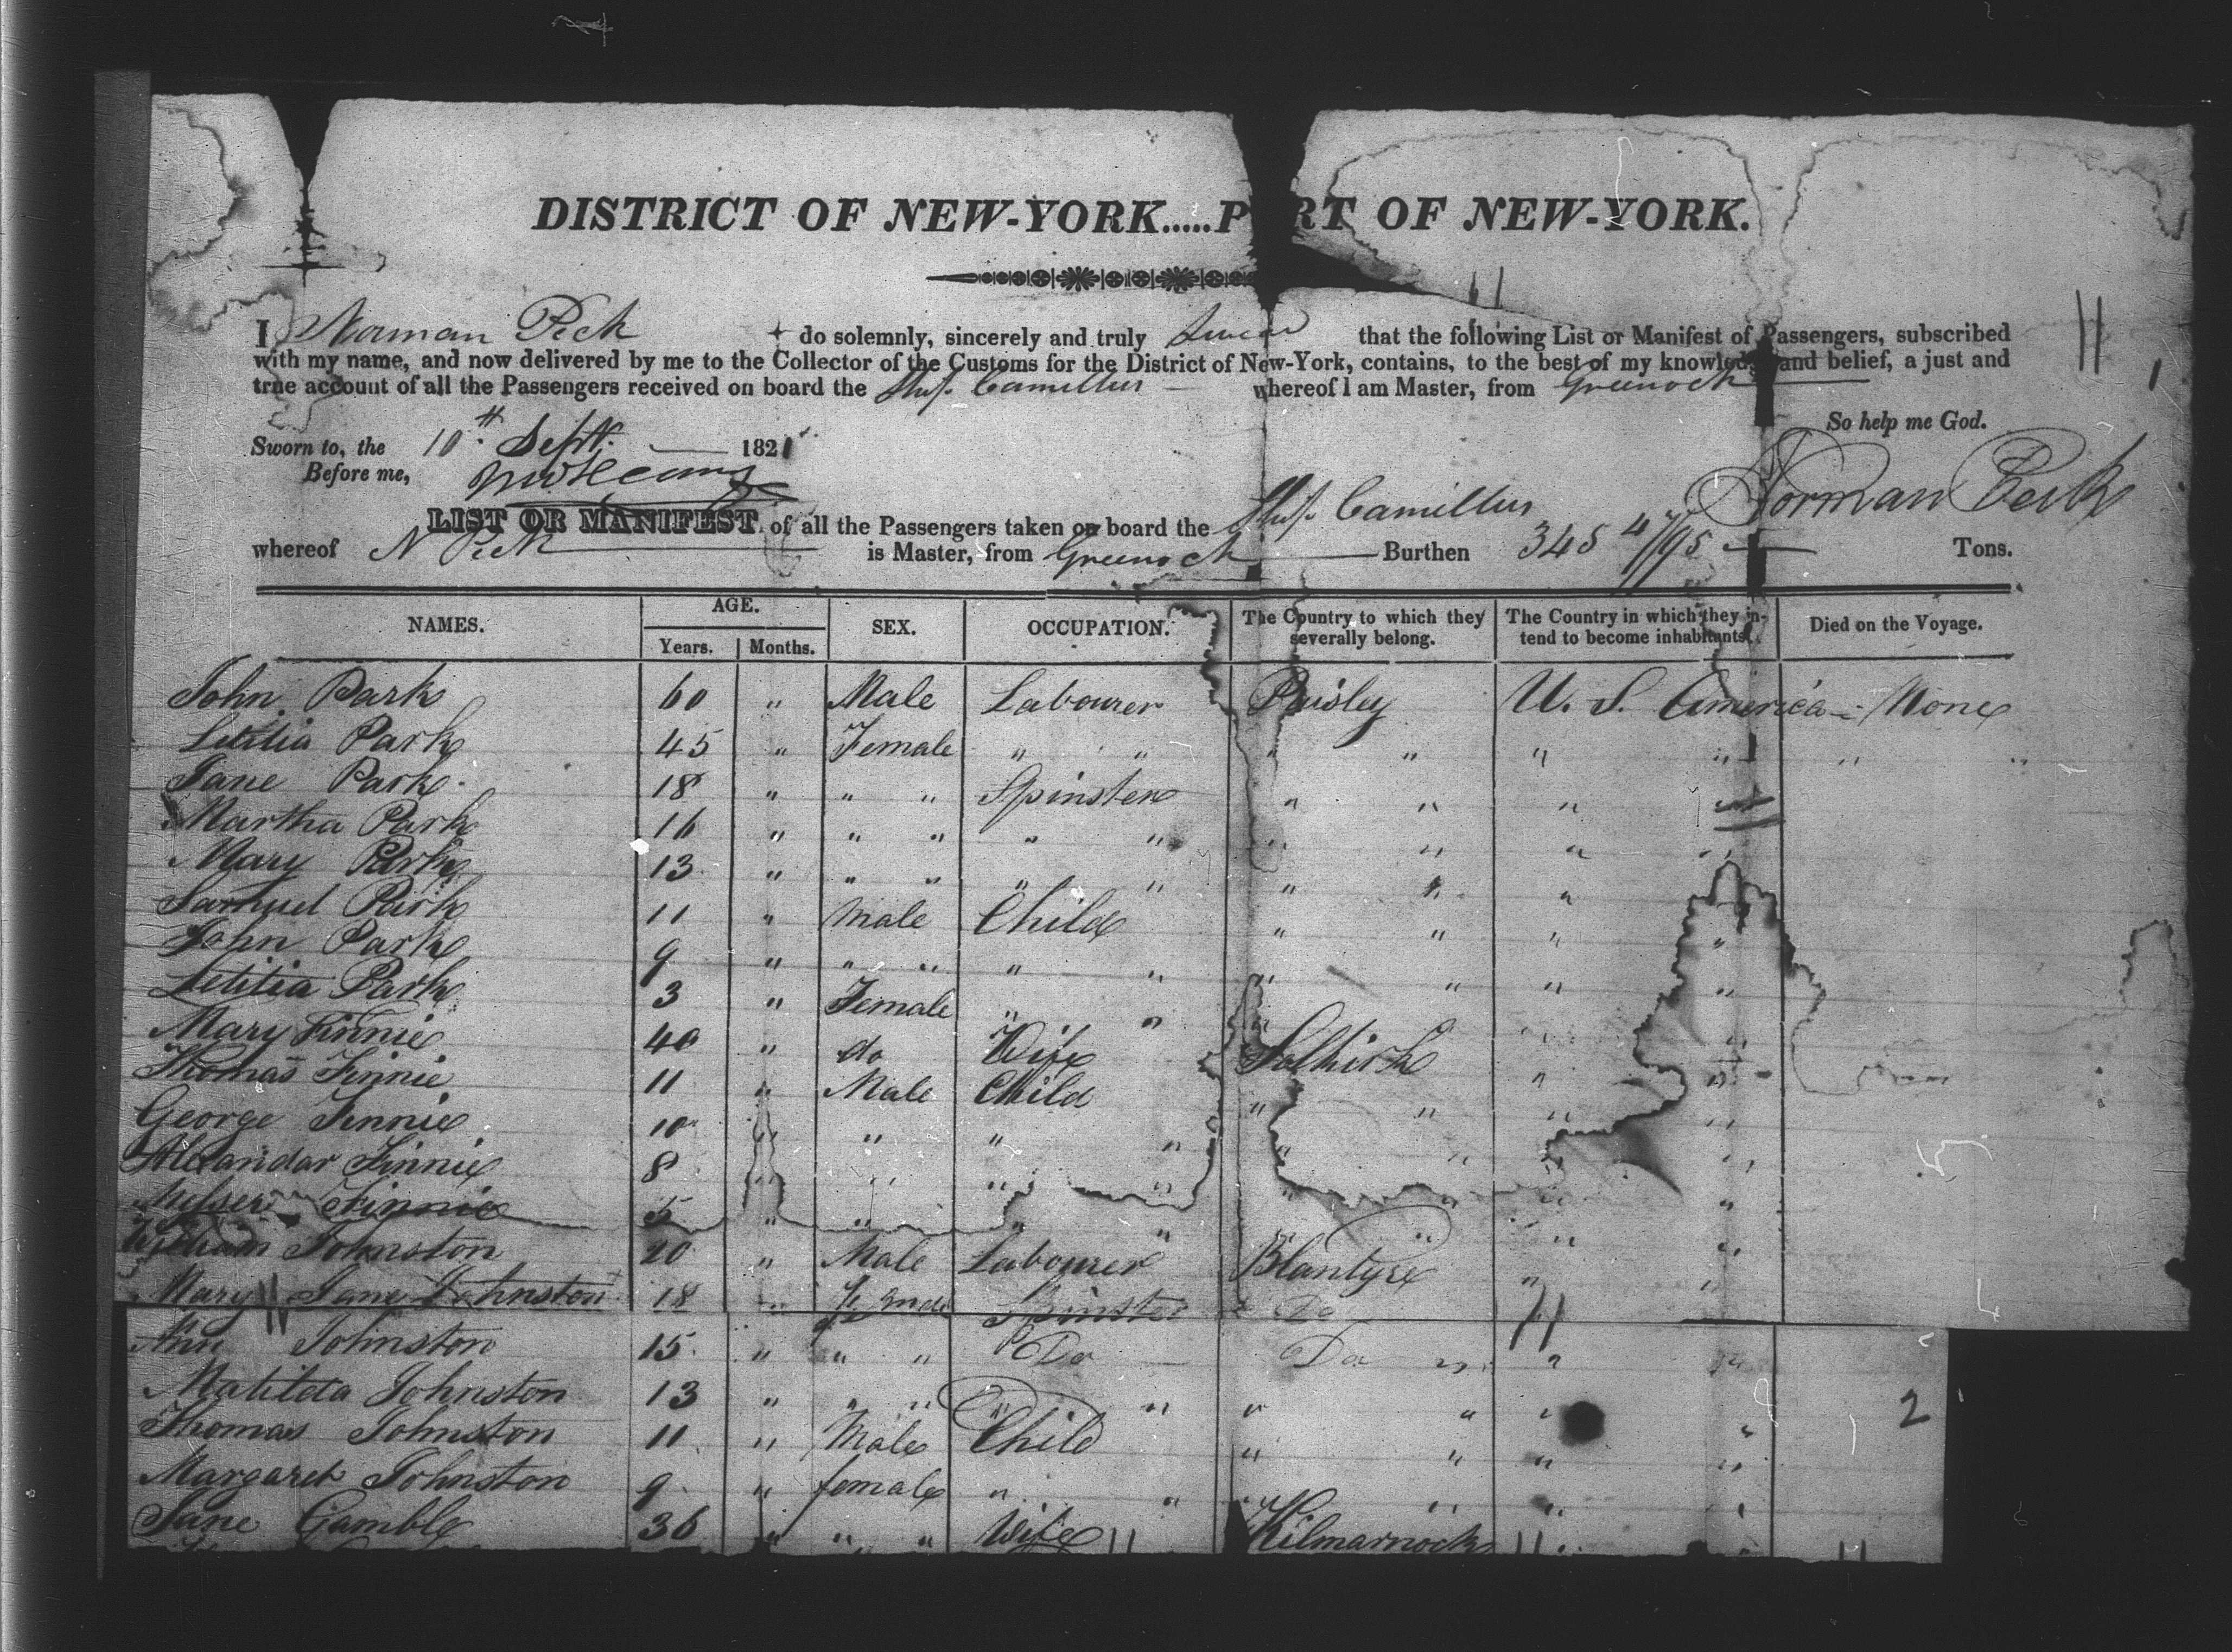 DISTRICT OF NEW-YORK.....P RT OF NEW-YORK.
I Norman Peck do solemnly, sincerely and truly swear that the following List or Manifest of Passengers, subscribed
with my name, and now delivered by me to the Collector of the Customs for the District of New-York, contains, to the best of my knowledge and belief, a just and
true account of all the Passengers received on board the Ship Camillus whereof I am Master, from Greenock
So help me God.
Sworn to, the 10th Sept. 1821
Before me,
Norman Peck
LIST OR MANIFEST of all the Passengers taken on board the Ship Camillus
whereof N Peck is Master, from Greenock Burthen 345 4/95 Tons.
NAMES. AGE. Years. Months. SEX. OCCUPATION. The Country to which they severally belong. The Country in which they intend to become inhabitants. Died on the Voyage.
John Park 60 " Male Labourer Paisley U. S. America None
Letitia Park 45 " Female " " " " " " " "
Jane Park 18 " " " Spinster " " " "
Martha Park 16 " " " " " " " " "
Mary Park 13 " " " " " " " "
Samuel Park 11 " Male Child " " " "
John Park 9 " " " " " " " " "
Letitia Park 3 " Female " " " " "
Mary Finnie 40 " do Wife Selkirk " "
Thomas Finnie 11 " Male Child " " " "
George Finnie 10 " " " " " " " "
Alexandar Finnie 8 " " " " " " " "
Finnie 5 " " " " " " "
William Johnston 20 " Male Labourer Blantyre " "
Mary Jane Johnston 18 " Female Spinster Do "
Ann Johnston 15 " " " Do Do " " "
Matilda Johnston 13 " " " " " " " "
Thomas Johnston 11 " Male Child " " " "
Margaret Johnston 9 " female " " " " " "
Jane Gamble 36 " " " Wife Kilmarnock " "
2